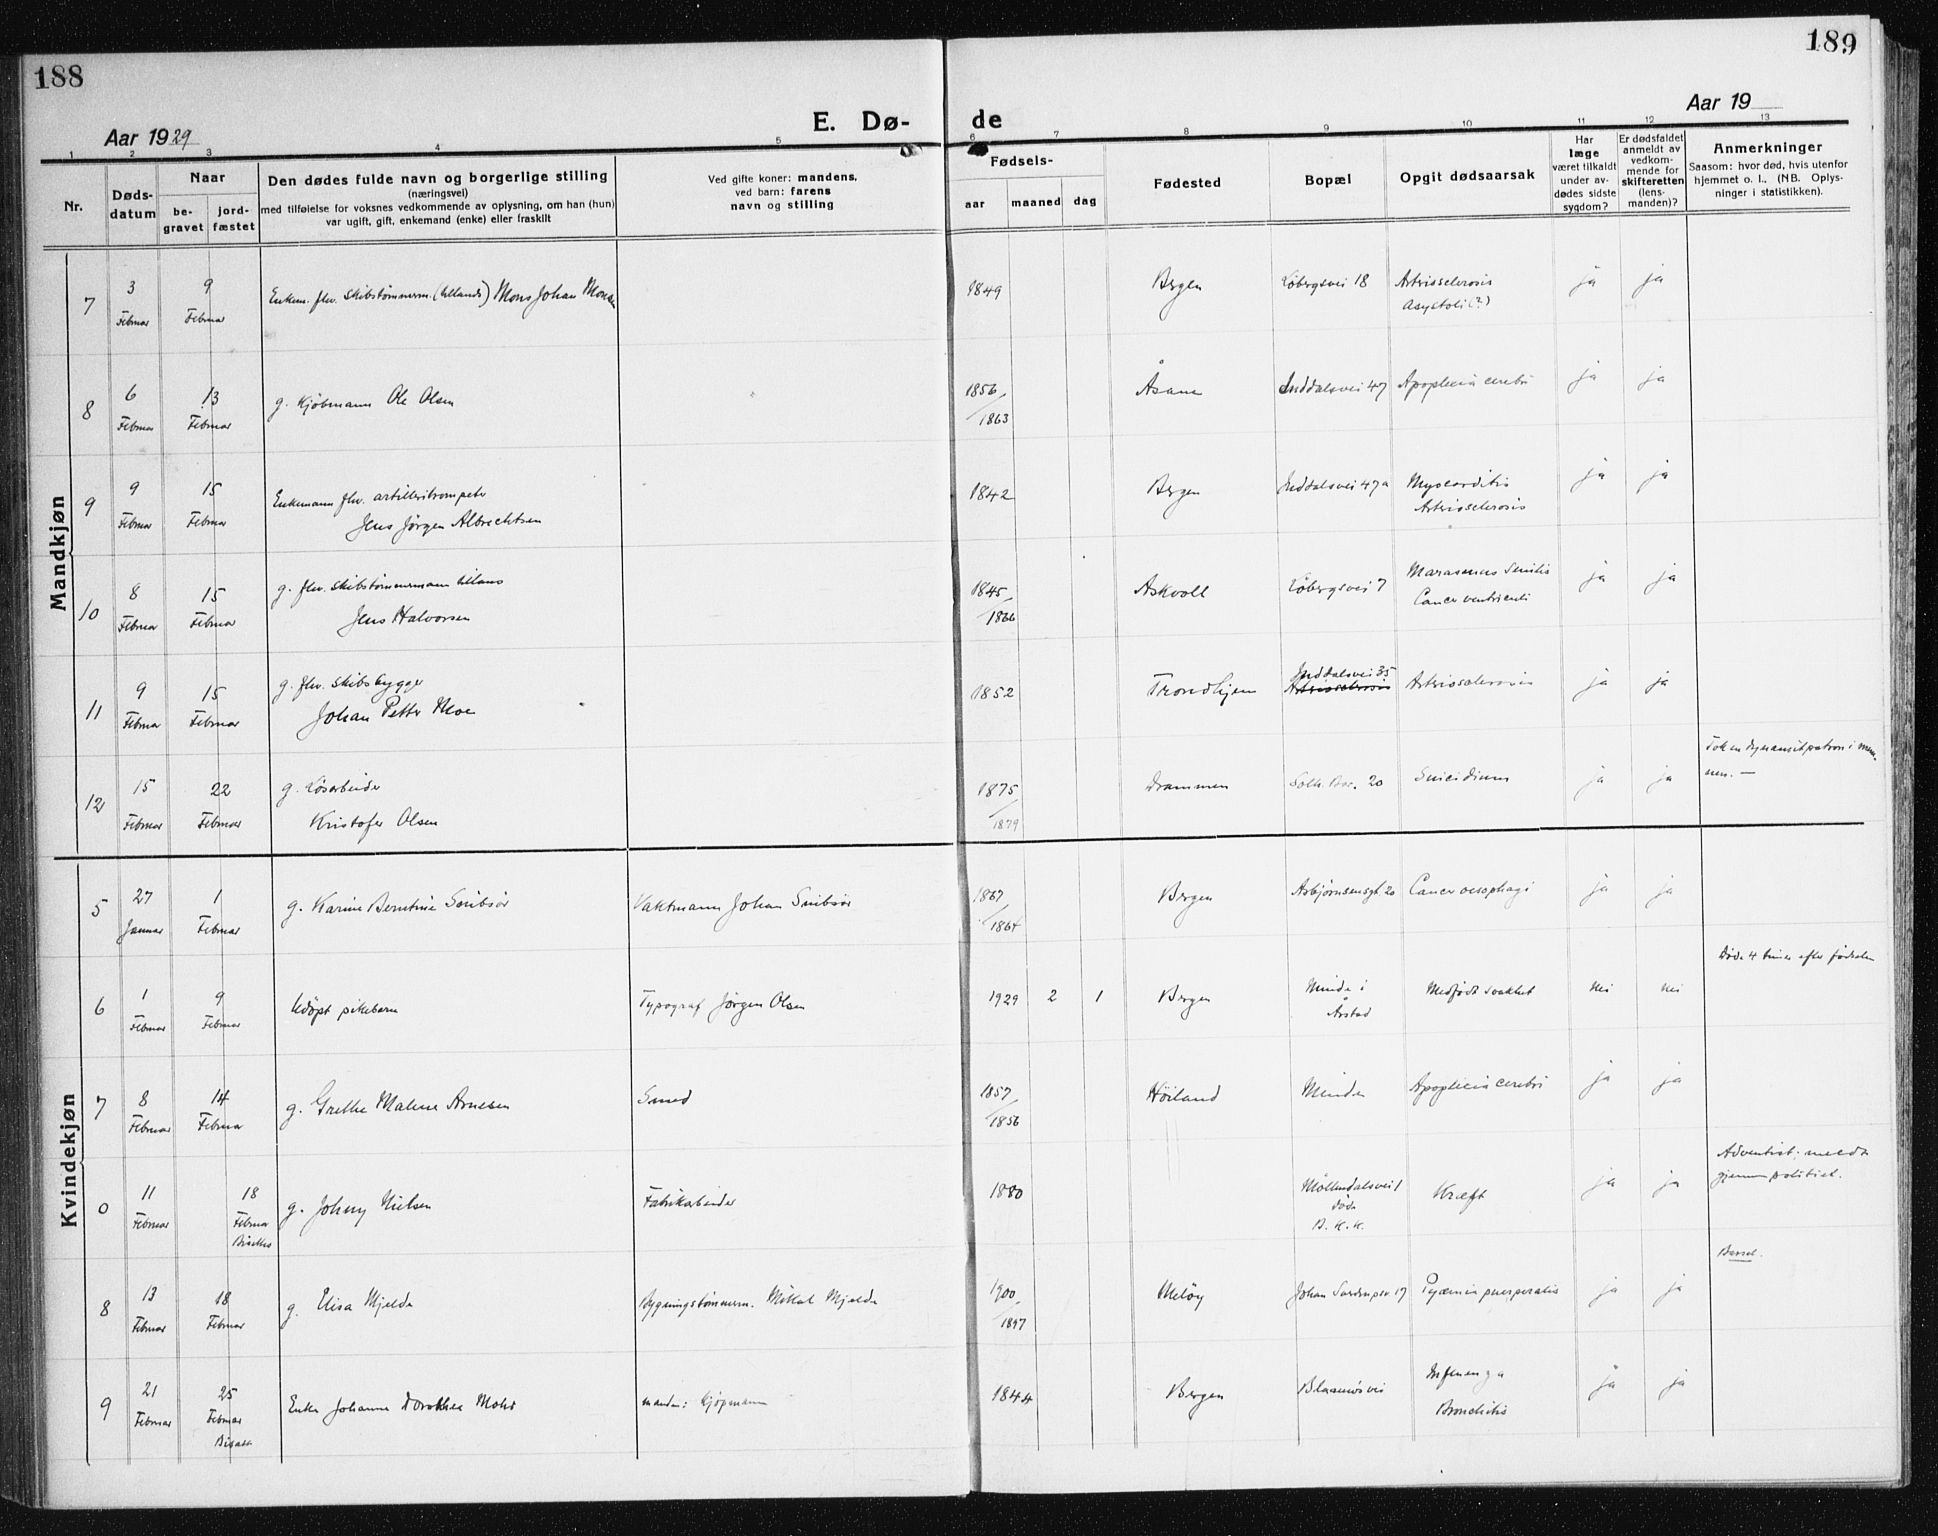 188
189
Aar 1929
E. Dø-
de
Aar 19
1 2 3 4 5 6 7 8 9 10 11 12 13
Nr.
Døds-
datum
Naar
be-
gravet
jord-
fæstet
Den dødes fulde navn og borgerlige stilling
(næringsvei)
med tilføielse for voksnes vedkommende av oplysning, om han (hun)
var ugift, gift, enkemand (enke) eller fraskilt
Ved gifte koner: mandens,
ved barn: farens
navn og stilling
Fødsels-
aar maaned dag
Fødested
Bopæl
Opgit dødsaarsak
Har
læge
været tilkaldt
under av-
dødes sidste
sygdom?
Er dødsfaldet
anmeldt av
vedkom-
mende for
skifteretten
(lens-
manden)?
Anmerkninger
Saasom: hvor død, hvis utenfor
hjemmet o. l.. (NB. Oplys-
ninger i statistikken).
Mandkjøn
7 3 Februar 9 Februar Enkem. fhv. skibstømmerm. (tillands) Mons Johan Monsen 1849 Bergen Løbergsvei 18 Artriosclerosis ja ja
Asystoli (?)
8 6 Februar 13 Februar g. Kjøbmann Ole Olsen 1856 / 1863 Åsane Inddalsvei 47 Apoplecia cerebri ja ja
9 9 Februar 15 Februar Enkemann fhv. artilleritrompeter 1842 Bergen Inddalsvei 47a Myocarditis ja ja
Jens Jørgen Albrechtsen Artriosclerosis
10 8 Februar 15 Februar g. fhv. skibstømmermann tillans 1845 / 1866 Askvoll Løbergsvei 7 Marasmus senilis ja ja
Jens Halvorsen Cancer ventriculi
11 9 Februar 15 Februar g. fhv. skibsbygger 1852 Trondhjem Inddalsvei 35 Artriosclerosis ja ja
Johan Petter Moe Artriosclerosis
12 15 Februar 22 Februar g. Løsarbeider 1875 / 1879 Drammen 20 Suicidium ja ja Tok en dynamitpatron i mun-
Kristofer Olsen nen. —
Kvindekjøn
5 27 Januar 1 Februar g. Karine Berntine Snibsør Vaktmann Johan Snibsør 1867 / 1864 Bergen Asbjørnsensgt. 20 Cancer oesophagi ja ja
6 1 Februar 9 Februar Udøpt pikebarn Typograf Jørgen Olsen 1929 2 1 Bergen Minde i Årstad Medfødt svakhet nei nei Døde 4 timer efter fødselen
7 8 Februar 14 Februar g. Grethe Malene Arnesen Smed 1857 / 1856 Høiland Minde Apoplecia cerebri ja ja
0 11 Februar 18 Februar g. Johny Nielsen Fabrikarbeider 1880 Møllendalsvei 1 døde B. K. K. Kræft ja ja Adventist. meldt
gjennem politiet.
8 13 Februar 18 Februar g. Elisa Mjelde Bygningstømmerm. Mikal Mjelde 1900 / 1897 Meløy Johan 17 Pyæmia puerperalis ja ja Barsel.
9 21 Februar 25 Februar Enke Johanne Dorothea Mohr manden: Kjøpmann 1844 Bergen Blaamansvei Influenza ja ja
Bronchitis